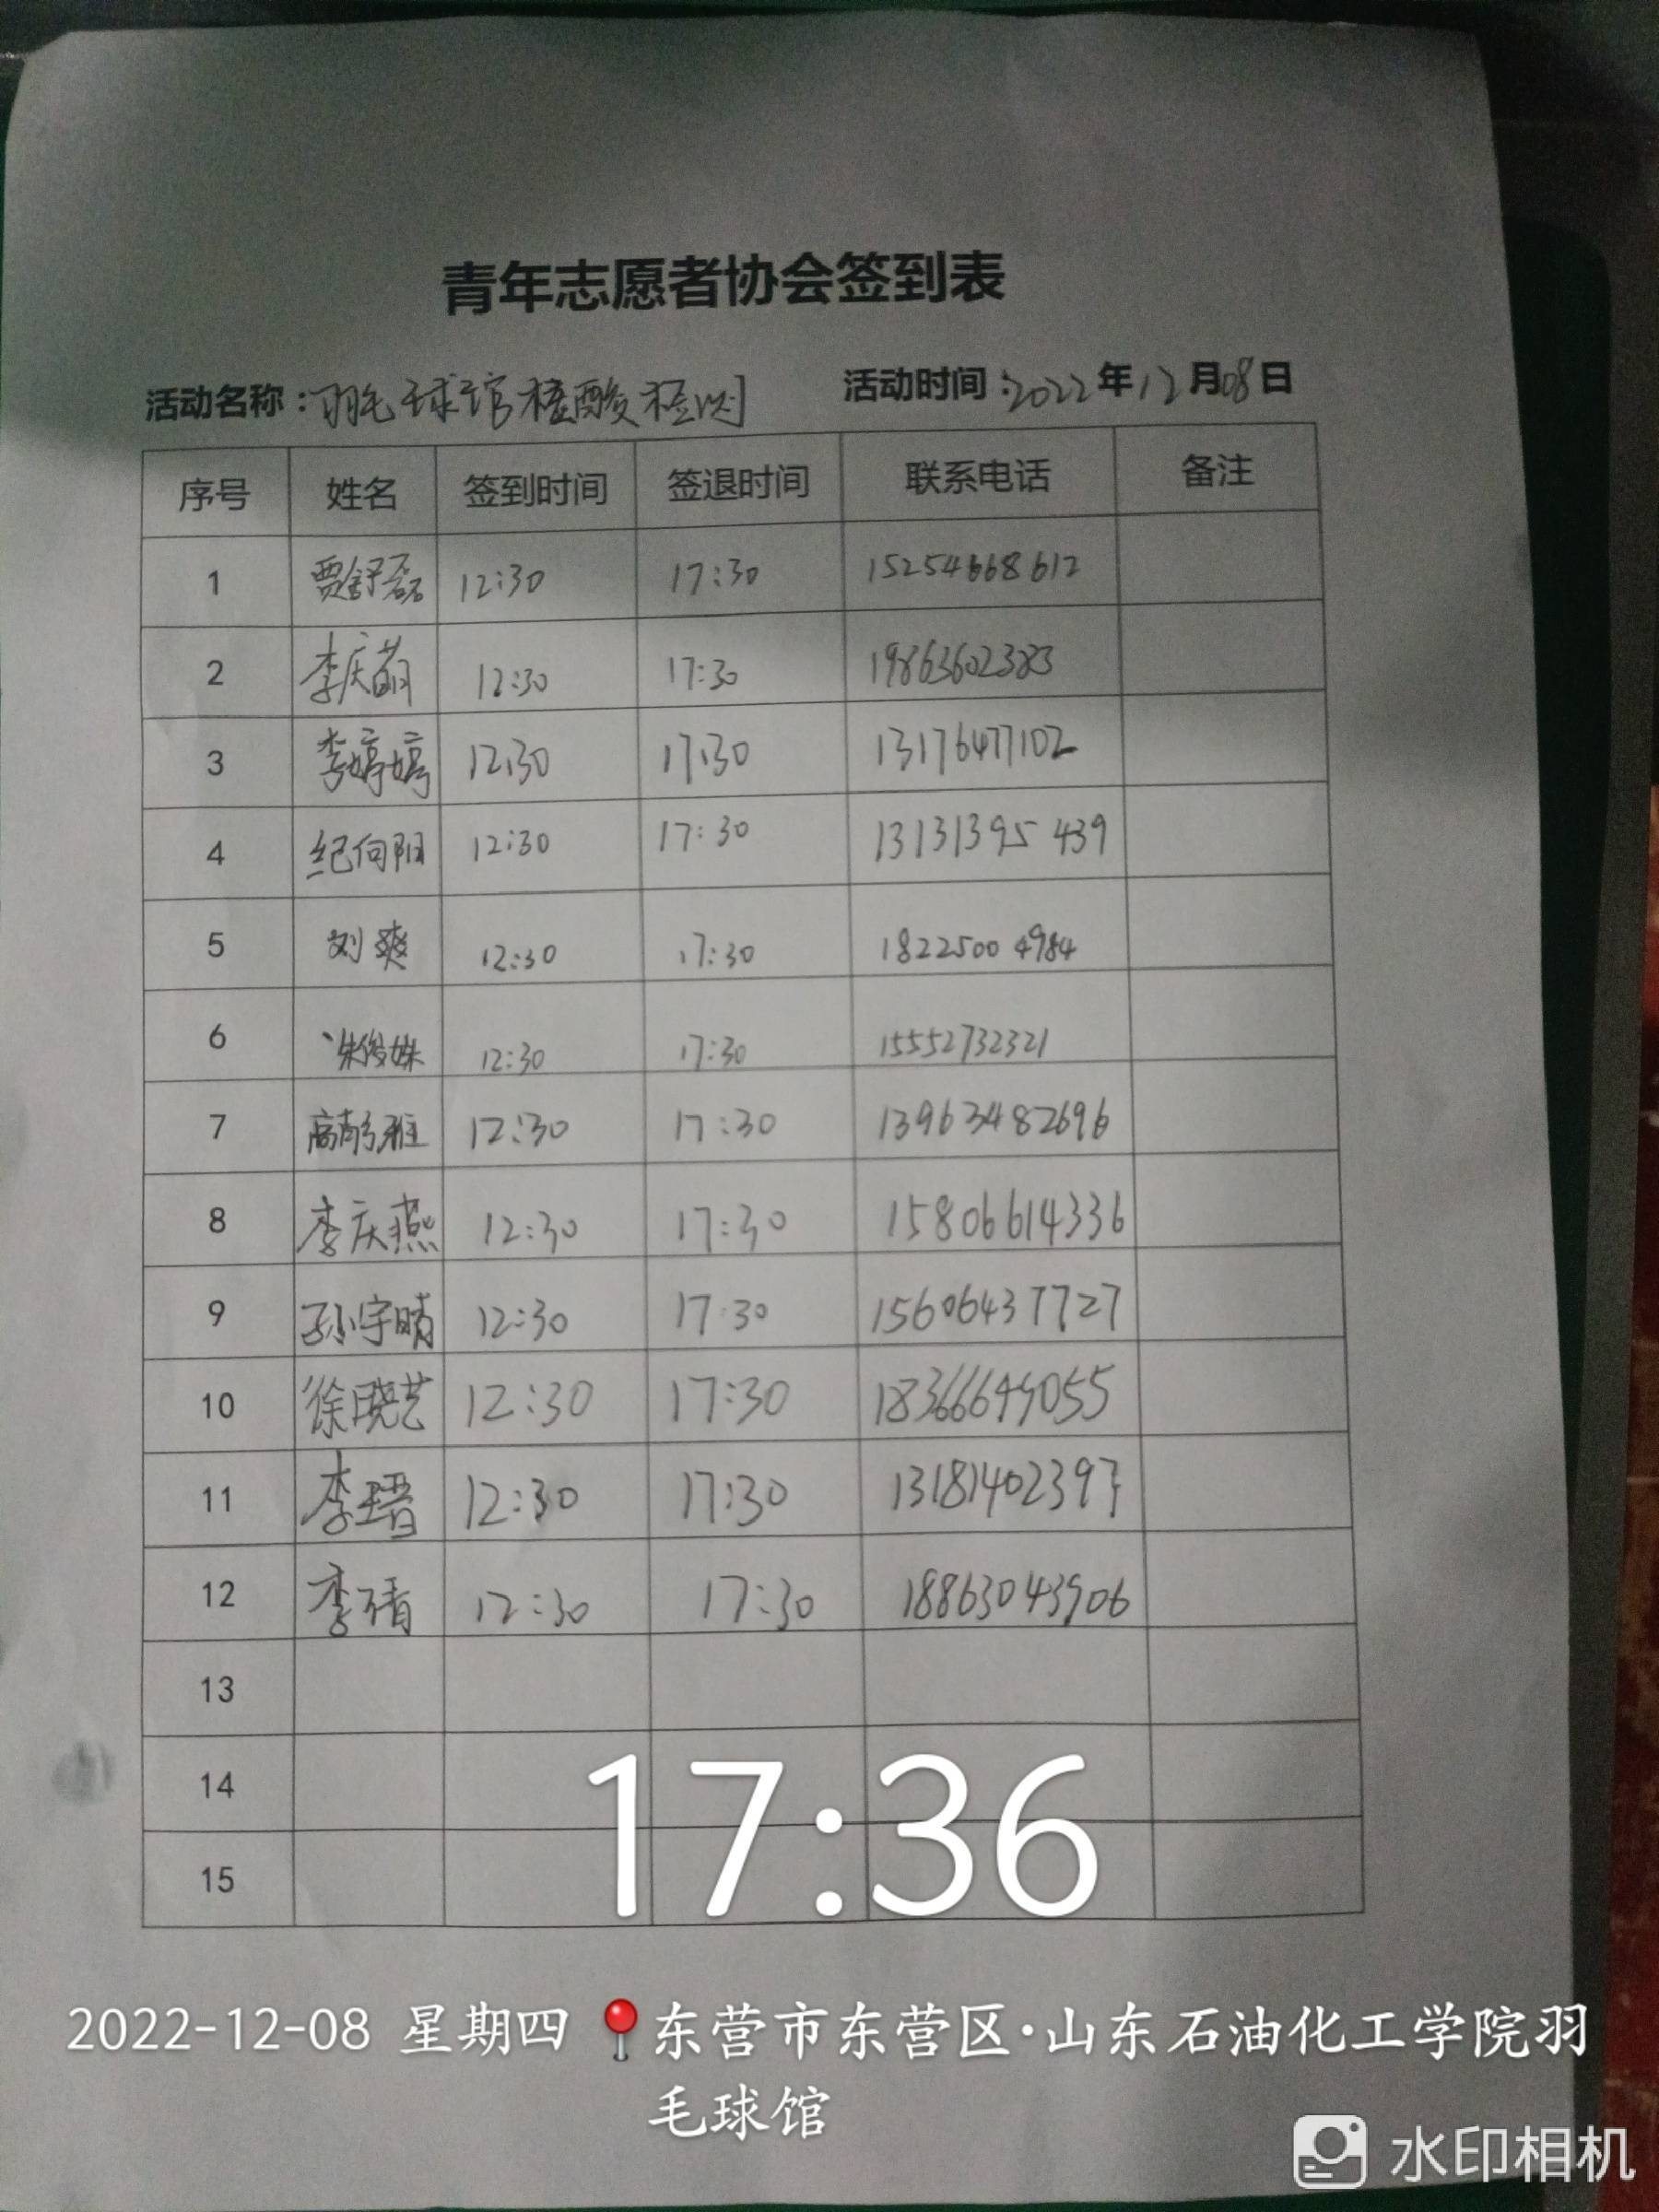 青年志愿者协会签到表
活动名称：羽毛球馆核酸检测 活动时间：2022年12月08日
序号 姓名 签到时间 签退时间 联系电话 备注
1 贾舒磊 12:30 17:30 15254668612
2 李庆萌 12:30 17:30 19863602383
3 李婷婷 12:30 17:30 13176477102
4 纪向阳 12:30 17:30 13131395439
5 刘爽 12:30 17:30 18225004984
6 朱俊姝 12:30 17:30 15552732321
7 高彭雅 12:30 17:30 13963482696
8 李庆燕 12:30 17:30 15806614336
9 孙宇晴 12:30 17:30 15606437727
10 徐晓艺 12:30 17:30 18366649055
11 李瑨 12:30 17:30 13181402397
12 李倩 12:30 17:30 18863043906
13
14
15
17:36
2022-12-08 星期四 东营市东营区·山东石油化工学院羽
毛球馆
水印相机